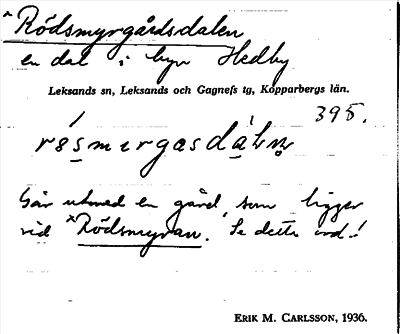 ˣRödsmyrgårdsdalen
en dal i byn Hedby
Leksands sn, Leksands och Gagnefs tg, Kopparbergs län.
395.
Går utmed en gård, som ligger
vid ˣRödsmyran. Se detta ord!
ERIK M. CARLSSON, 1936.